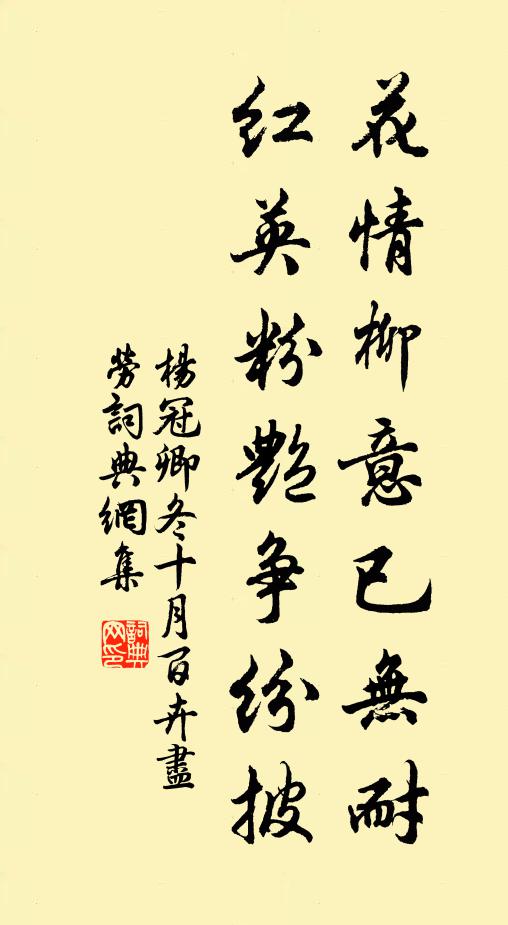 花情柳意已無耐
紅英粉艷争紛披
楊冠卿冬十月百卉盡
勞詞典網集
詞典網印